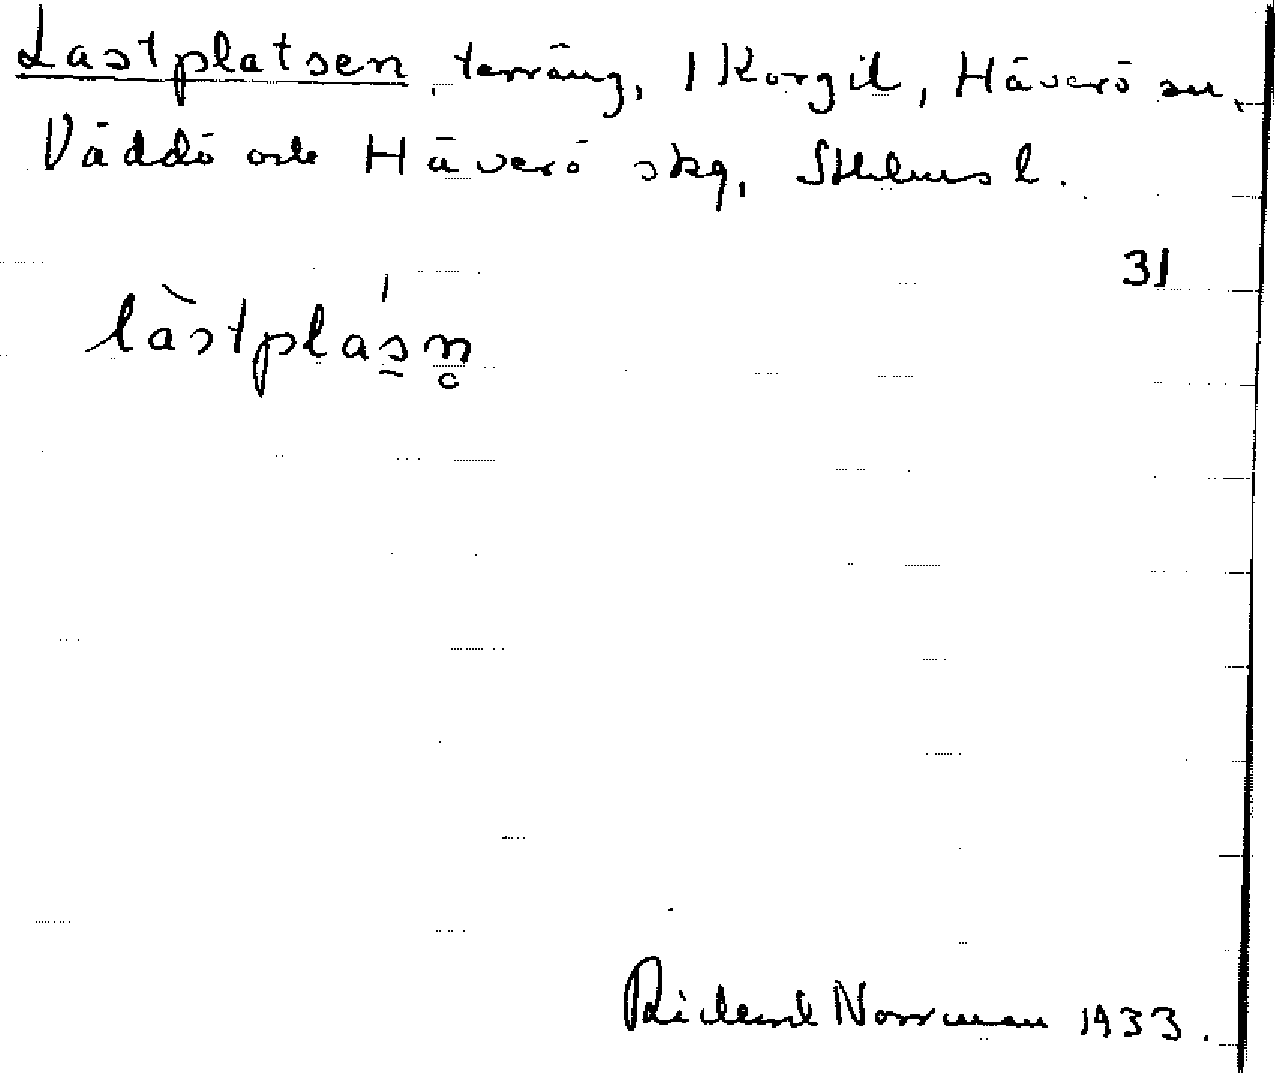 Lastplatsen, terräng, 1 Korgil, Häverö sn,
Väddö och Häverö skg, Sthlms l.
31
làstplás̲n̥
Rickard Norrman 1933.